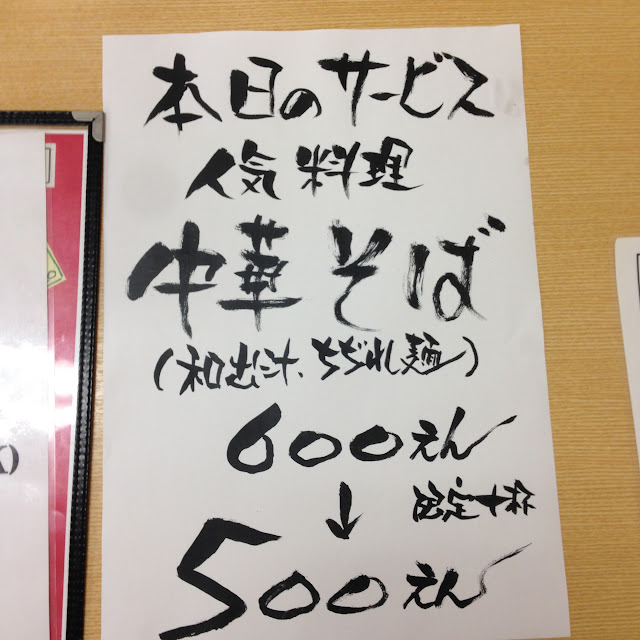 本日のサービス
人気料理
中華そば
(和出汁、ちぢれ麺)
600えん
↓ 限定十杯
500えん